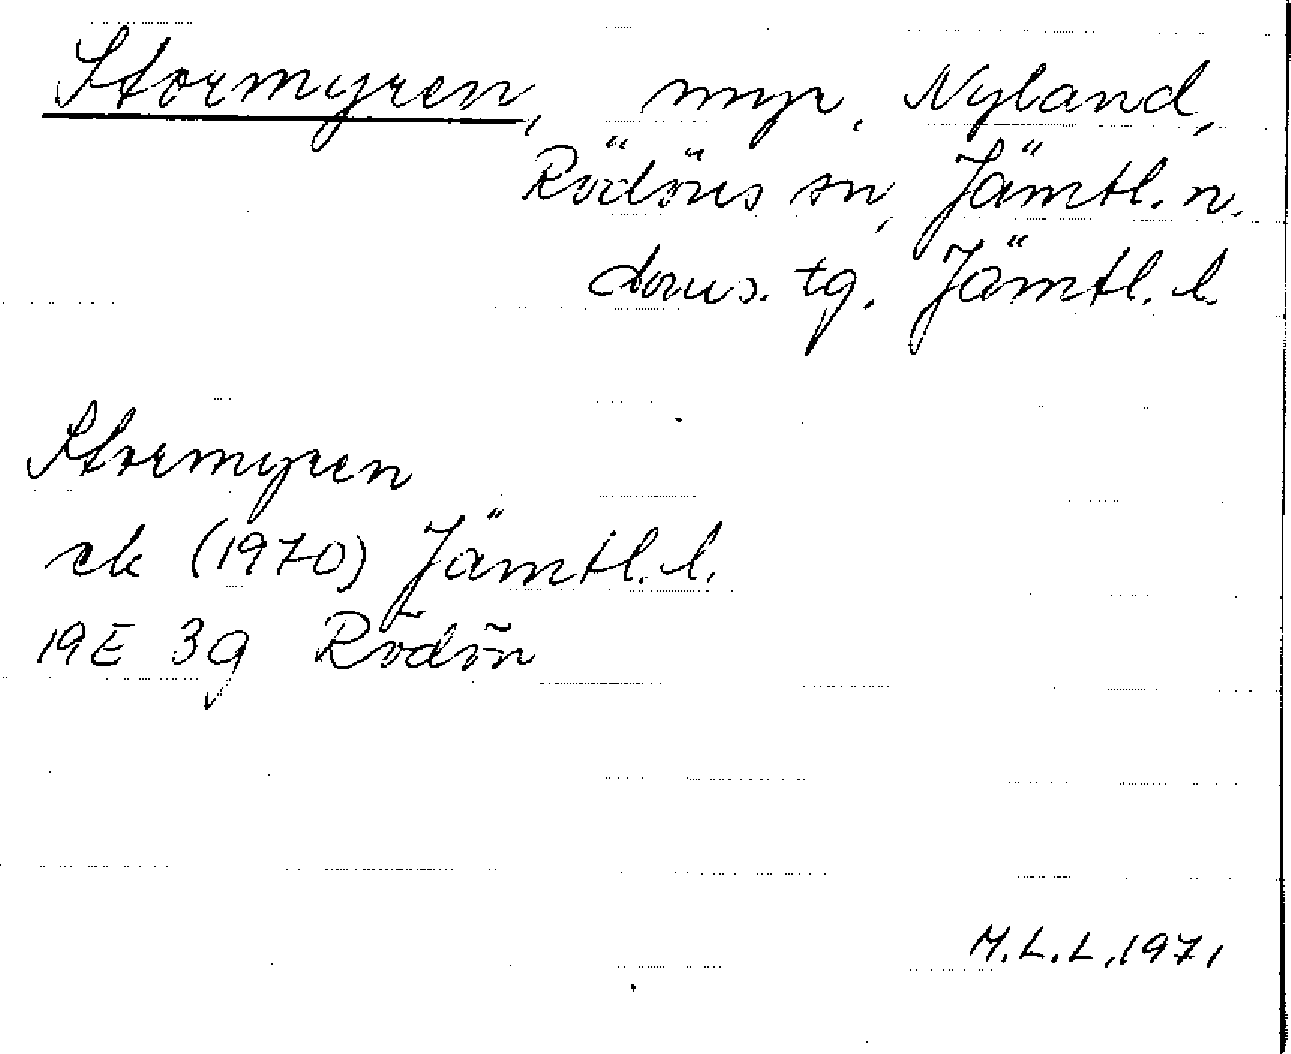 Stormyren, myr, Nyland,
Rödöns sn, Jämtl. n.
doms. tg. Jämtl. l.
Stormyren
ek (1970) Jämtl. l.
19E 3g Rödön
M.L.L, 1971